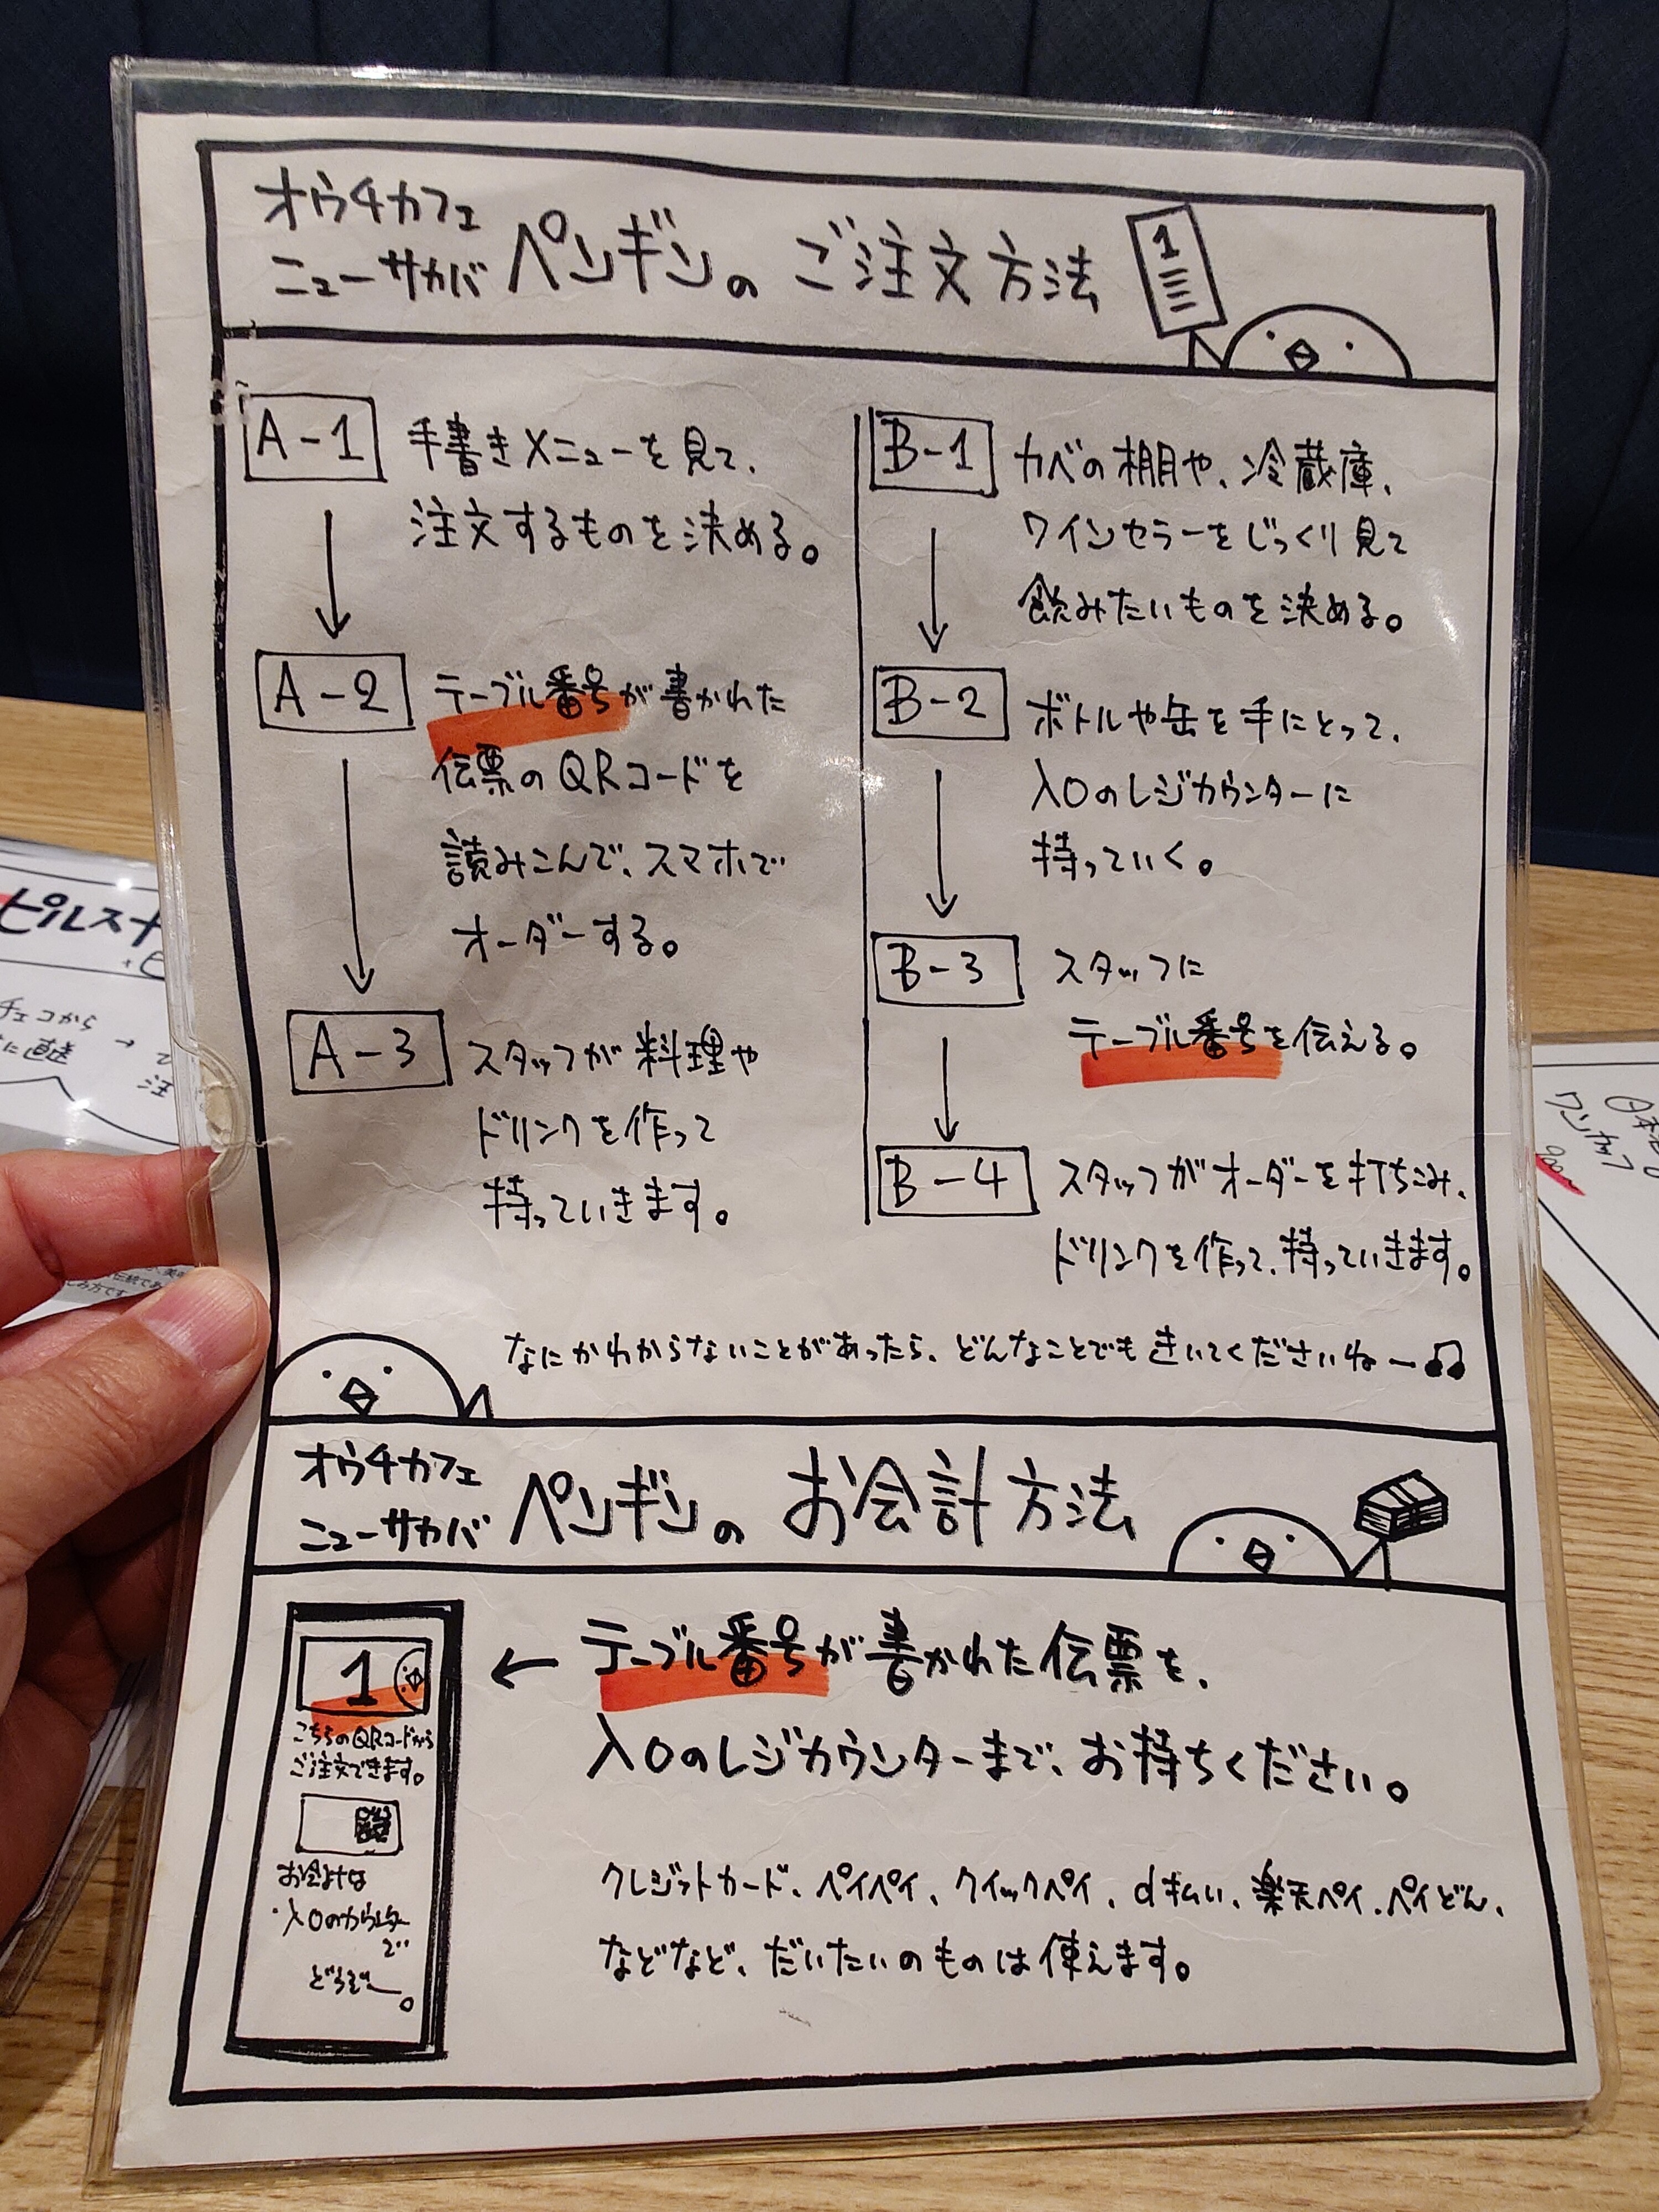 オウチカフェ
ニューサカバ ペンギンの ご注文方法
1
A-1
手書きメニューを見て、
注文するものを決める。
A-2
テーブル番号が書かれた
伝票のQRコードを
読みこんで、スマホで
オーダーする。
A-3
スタッフが料理や
ドリンクを作って
持っていきます。
B-1
カベの棚や、冷蔵庫、
ワインセラーをじっくり見て
飲みたいものを決める。
B-2
ボトルや缶を手にとって、
入口のレジカウンターに
持っていく。
B-3
スタッフに
テーブル番号を伝える。
B-4
スタッフがオーダーを打ちこみ、
ドリンクを作って、持っていきます。
なにかわからないことがあったら、どんなことでもきいてくださいねー♫
オウチカフェ
ニューサカバ ペンギンの お会計方法
1
こちらのQRコードから
ご注文できます。
お会計は
入口のカウンター
で
どうぞー。
← テーブル番号が書かれた伝票を、
入口のレジカウンターまで、お持ちください。
クレジットカード、ペイペイ、クイックペイ、d払い、楽天ペイ、ペイどん、
などなど、だいたいのものは使えます。
ピルスナ
チェコから
に直送
注
日本
ワンカップ